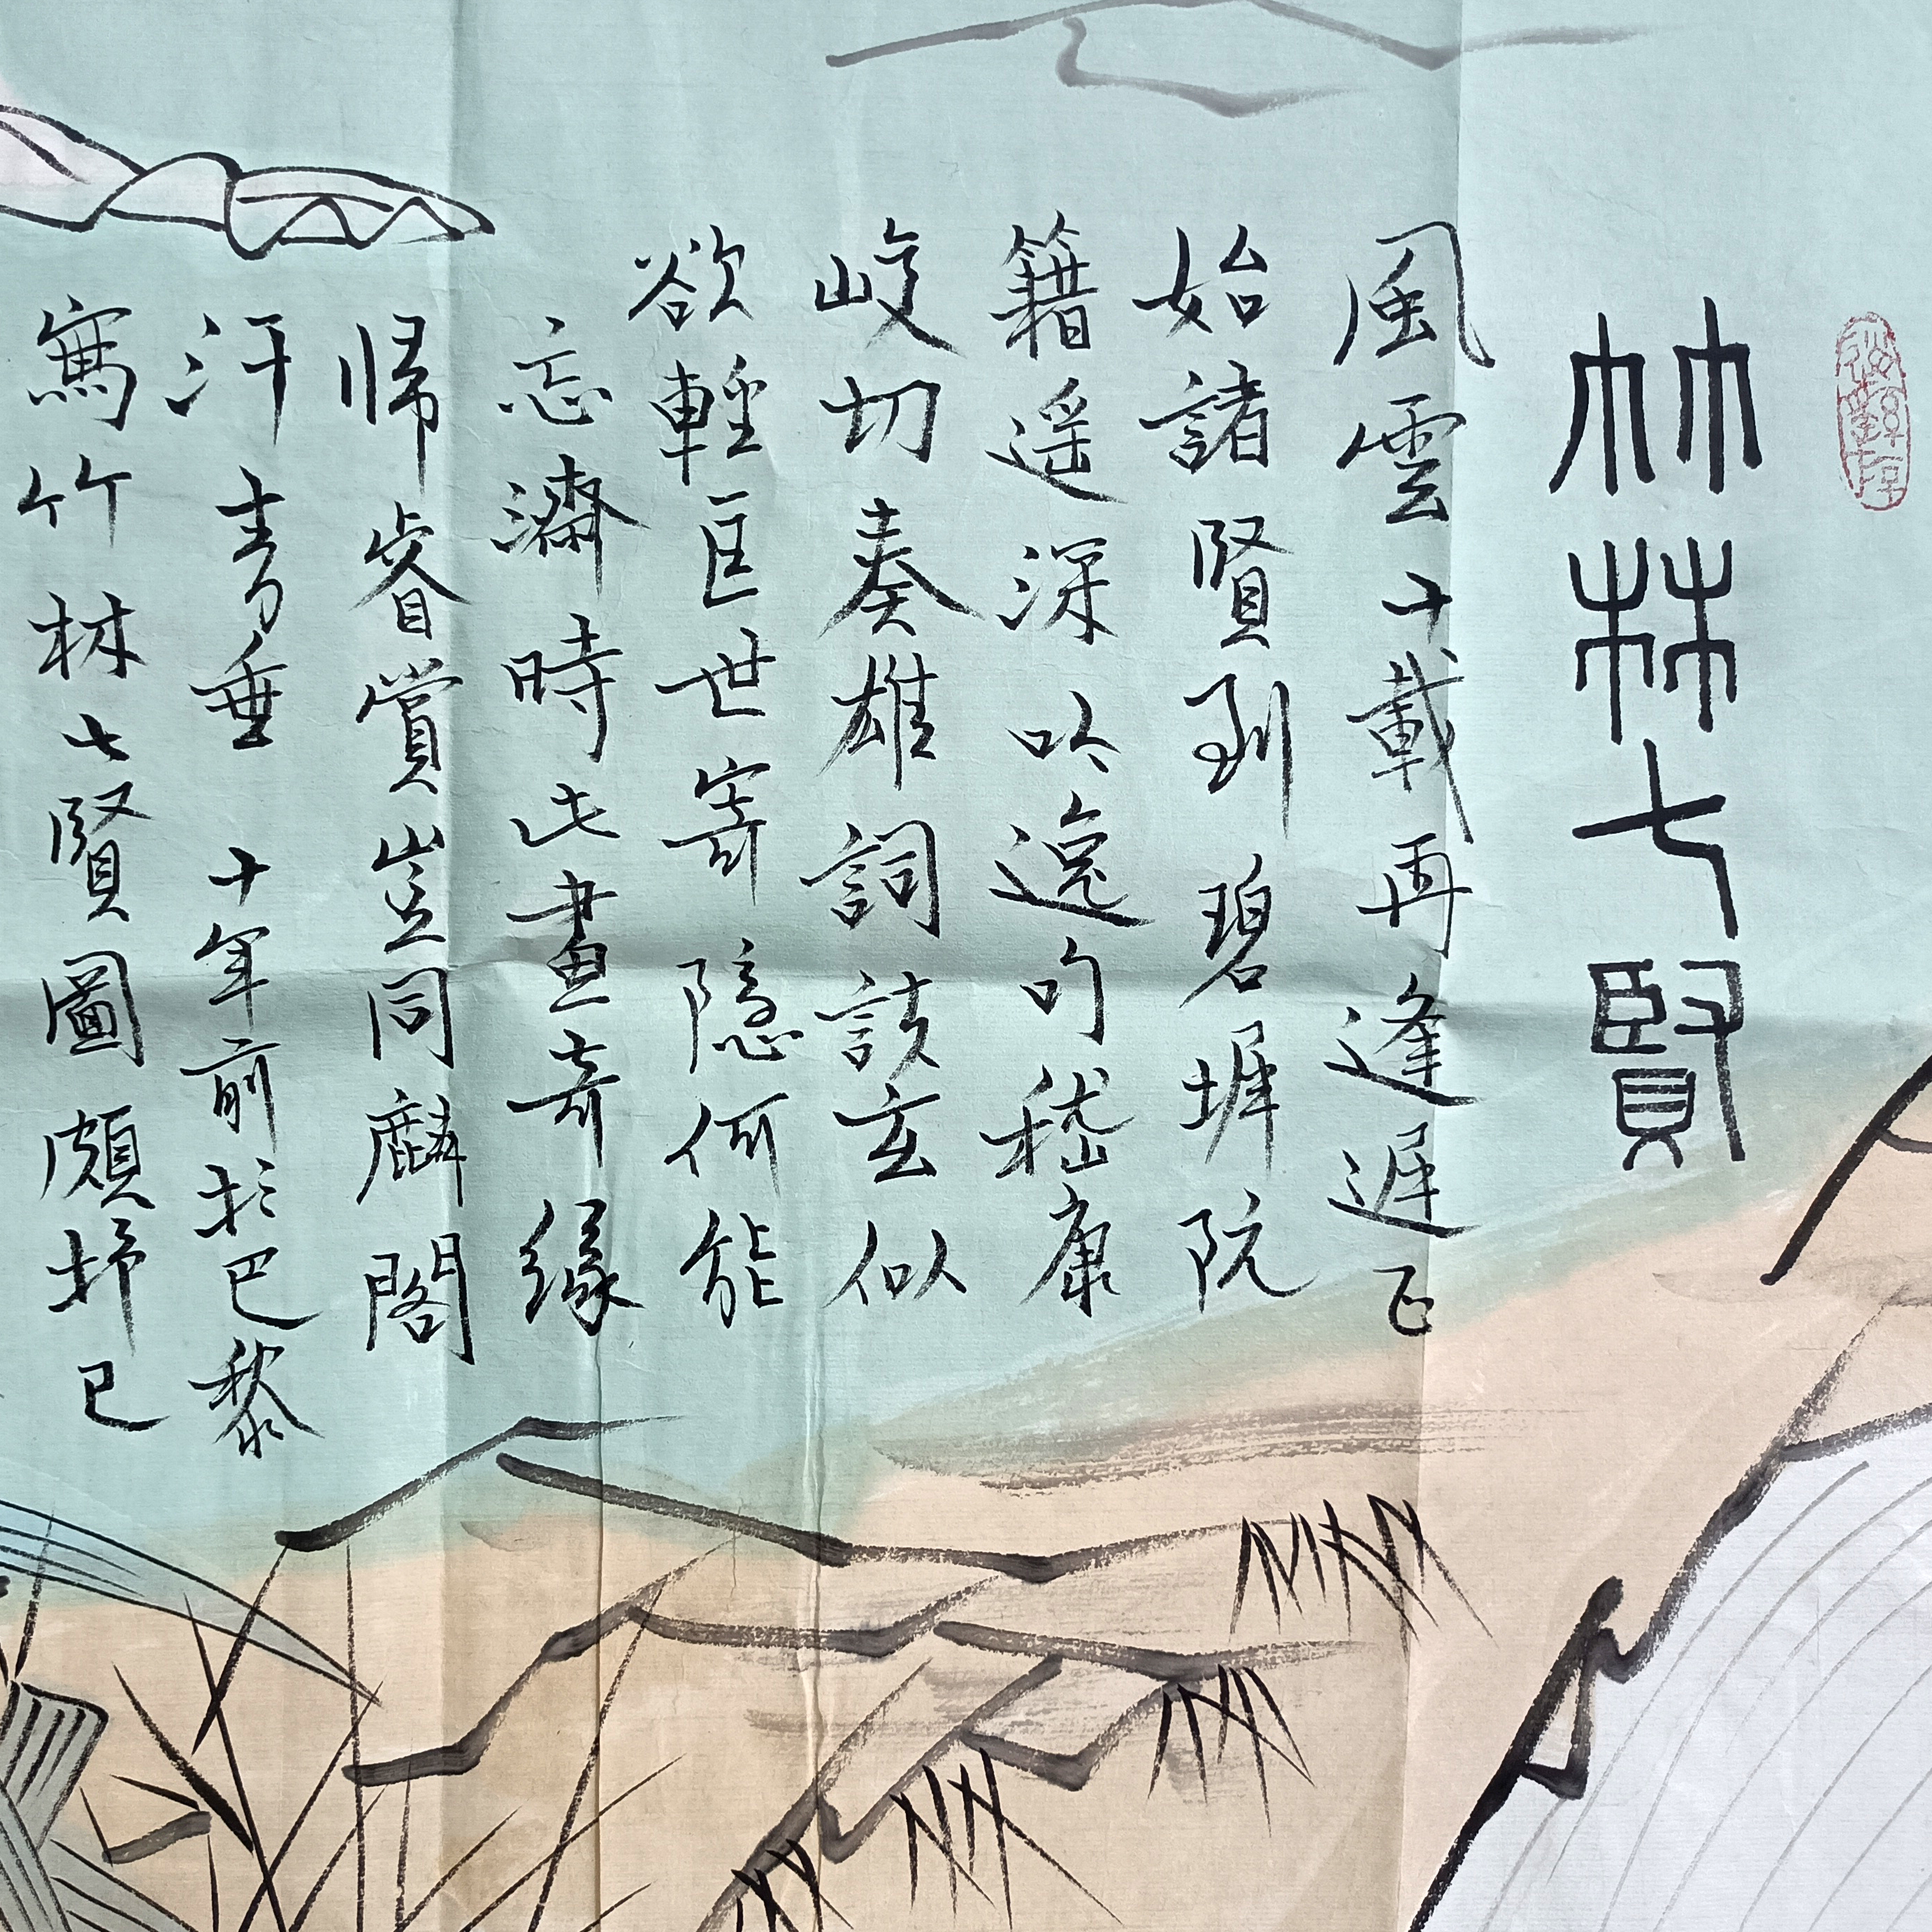 竹林七賢
風雲十載再逢遲正
始諸賢到碧墀阮
籍遥深吟逸句嵇康
峻切奏雄詞談玄似
欲輕匡世寄隱何能
忘濟時此畫奇緣
歸睿賞豈同麟閣
汗青垂 十年前於巴黎
寫竹林七賢圖頗抒己